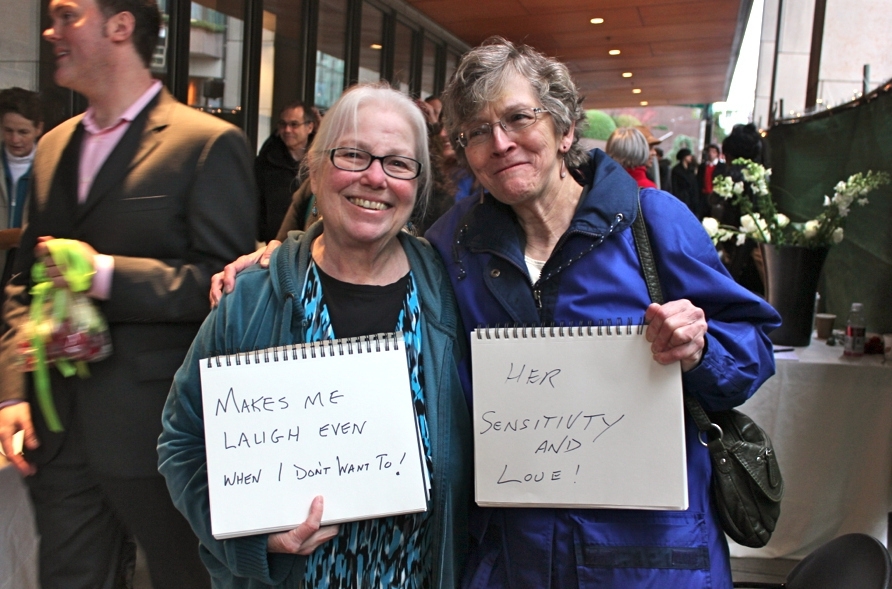 MAKES ME
LAUGH EVEN
WHEN I DON'T WANT TO!
HER
SENSITIVTY
AND
LOVE!